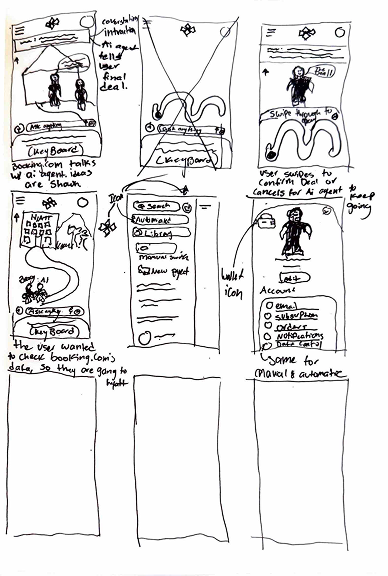 conversation
Ai agent
tells
user
final
deal.
Ask anything
KeyBoard
Booking.com talks
w/ ai agent. ideas
are Shown
Ask anything
KeyBoard
Deal!
Swipe through to
User swipes to
Confirm Deal or
Cancels for Ai agent to keep
going
Icon
HYATT
Ask anything
KeyBoard
The user wanted
to check booking.com's
data, So they are going to
hyatt
Search
Automatic
Library
Manual
New
wallet
icon
edit
Account
email
Subscription
Orders
Notifications
Data Control
Same for
Manual & automatic